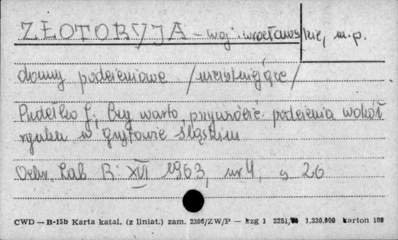 ZŁOTORYJA – woj. wrocławskie, m.p.
domy podcieniowe /nieistniejące/
Pudełko J. Czy warto przywrócić podcienia wokół
rynku w Gryfowie Śląskim
Ochr. Zab. R: XVI 1963, nr 4, s 26
CWD — B-15b Karta katal. (z liniat.) zam. 2396/ZW/P — kzg 1 2251, 1,330.000 karton 180